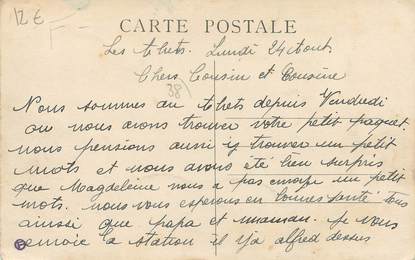 12 €
F
CARTE POSTALE
Les thets. Lundi 24 Aout
(38)
Chers Cousin et Cousine
Nous sommes au thets depuis Vendredi
ou nous avons trouver votre petit paquet.
nous pensions aussi y trouver un petit
mots et nous avons été bien surpris
que Magdeleine nous a pas envoyé un petit
mots. nous vous esperons en bonnes santé tous
ainsi que papa et maman. je vous
envoie la station il y a alfred dessus